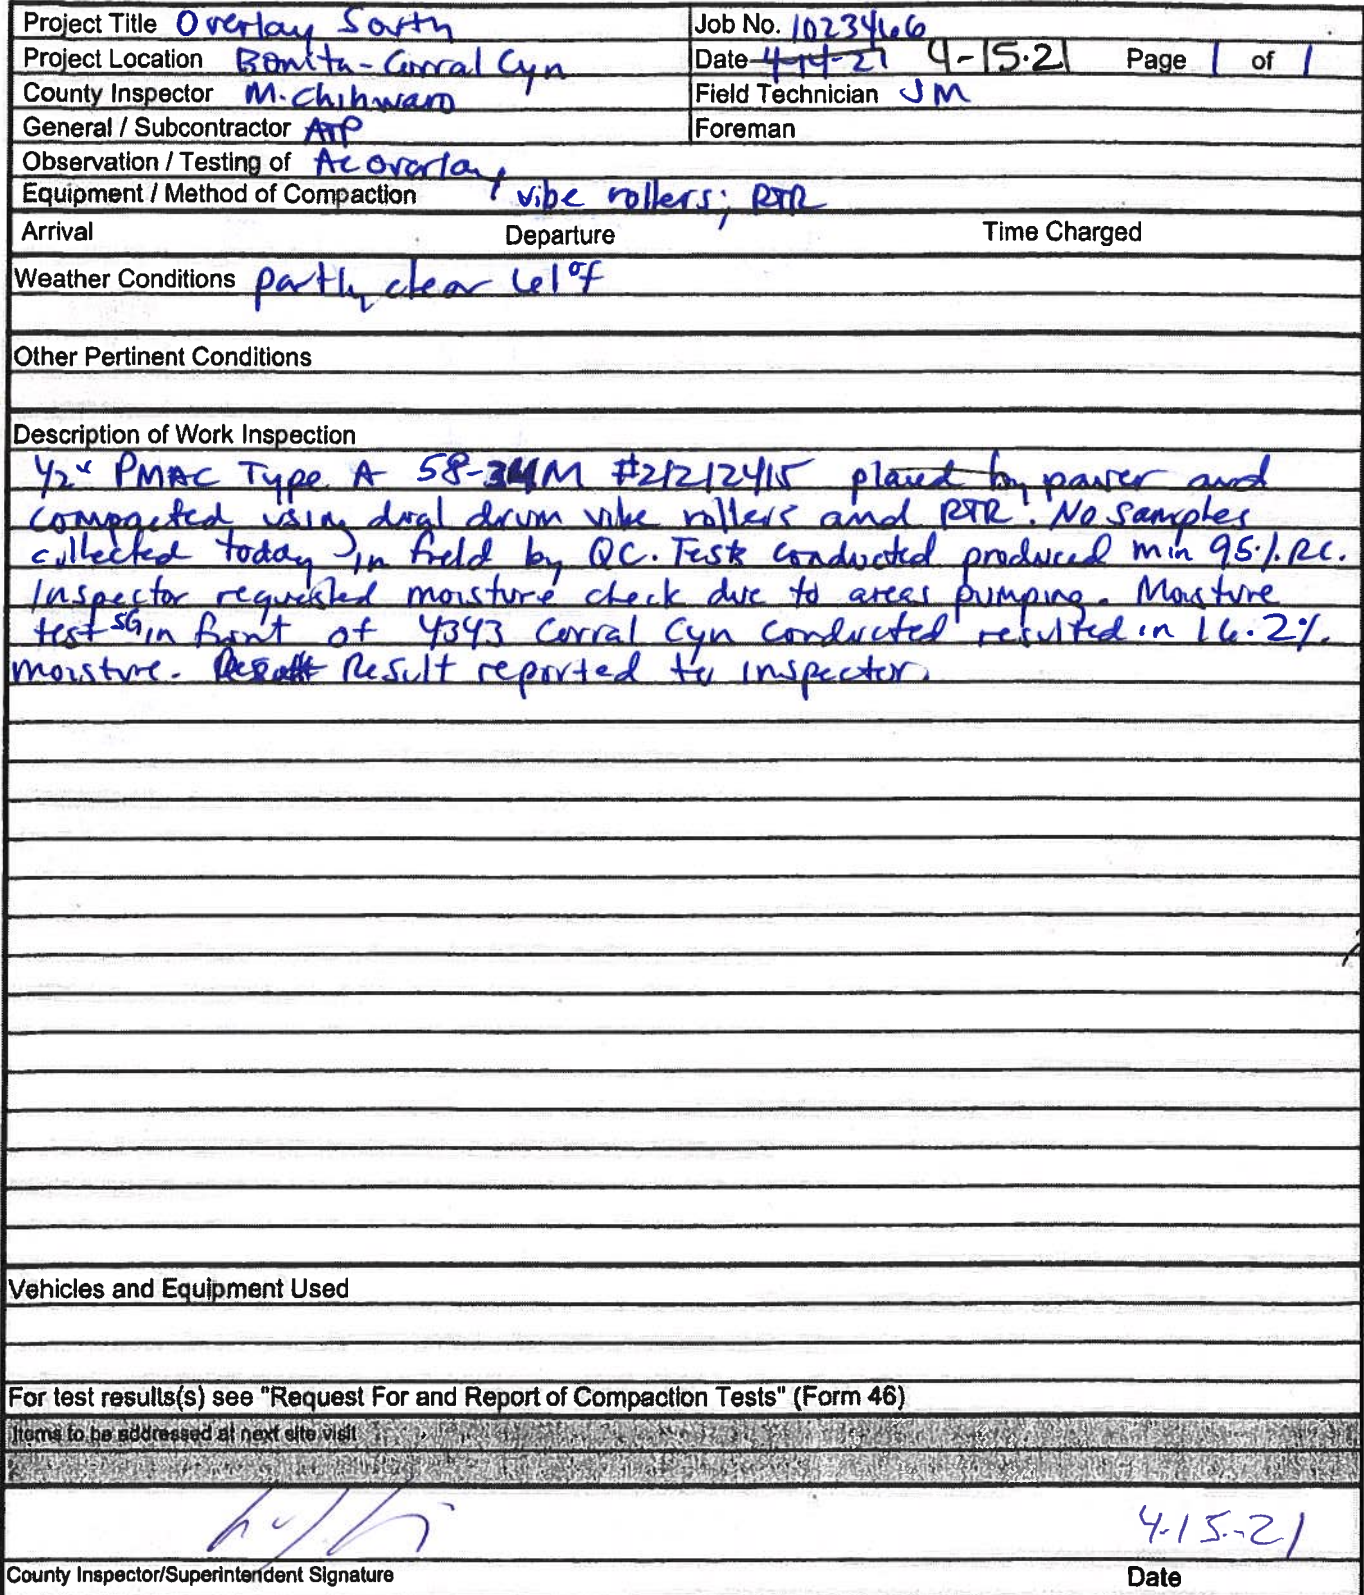 Project Title Overlay South Job No. 1023466
Project Location Bonita-Corral Cyn Date 4-14-21 4-15-21 Page 1 of 1
County Inspector M. Chihwaro Field Technician JM
General / Subcontractor ATP Foreman
Observation / Testing of Ac overlay
Equipment / Method of Compaction vibe rollers; RTR
Arrival Departure Time Charged
Weather Conditions partly clear 61°f
Other Pertinent Conditions
Description of Work Inspection
1/2" PMAC Type A 58-34M #21212415 placed by paver and
compacted using dual drum vibe rollers and RTR. No samples
collected today in field by QC. Tests conducted produced min 95% RC.
Inspector requested moisture check due to areas pumping. Moisture
test SG in front of 4343 Corral Cyn conducted resulted in 16.2%
moisture. Result Result reported to inspector.
Vehicles and Equipment Used
For test results(s) see "Request For and Report of Compaction Tests" (Form 46)
Items to be addressed at next site visit
4-15-21
County Inspector/Superintendent Signature Date